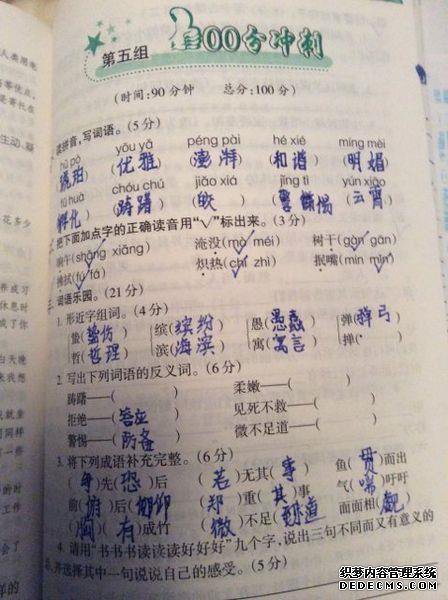 第五组 100分冲刺
(时间:90分钟 总分:100分)
一、读拼音,写词语。(5分)
hǔ pò yōu yǎ péng pài hé xié míng mèi
琥珀 (优雅) (澎湃) (和谐) (明媚)
fū huà chóu chú jiāo xiá jǐng tì yún xiāo
孵化 (踌躇) (狡) (警惕) (云霄)
二、把下面加点字的正确读音用“√”标出来。(3分)
晌午(shǎng xiǎng) 淹没(mò méi) 树干(gàn gān)
拂拭(fú fá) 炽热(chì zhì) 抿嘴(mín mǐn)
三、词语乐园。(21分)
1. 形近字组词。(4分)
蜇(蜇伤) 缤(缤纷) 愚(愚蠢) 弹(弹弓)
哲(哲理) 滨(海滨) 寓(寓言) 掸(
2. 写出下列词语的反义词。(6分)
踌躇——( ) 柔嫩——( )
拒绝——(答应) 见死不救——( )
警惕——(防备) 微不足道——( )
3. 将下列成语补充完整。(6分)
(争)先(恐)后 (若)无其(事) 鱼(贯)而出
前(俯)后(仰) (郑)重(其)事 气(喘)吁吁
(胸)(有)成竹 (微)不足(道) 面面相(觑)
4. 请用“书书书读读读好好好”九个字,说出三句不同而又有意义的
,并选择其中一句说说自己的感受。(5分)
人类用来
等优点,
生动、凝
花多少
养成习
休息时
成了你
白天晚
来我想
会了
织梦内容管理系统
DEDECMS.COM